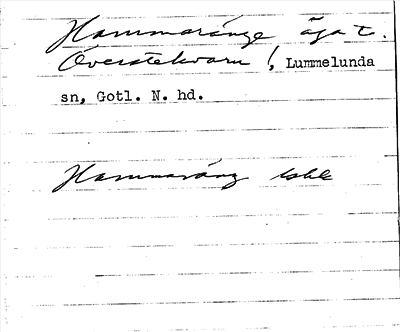 Hammaränge äga t.
Överstekvarn !, Lummelunda
sn, Gotl. N. hd.
Hammaräng